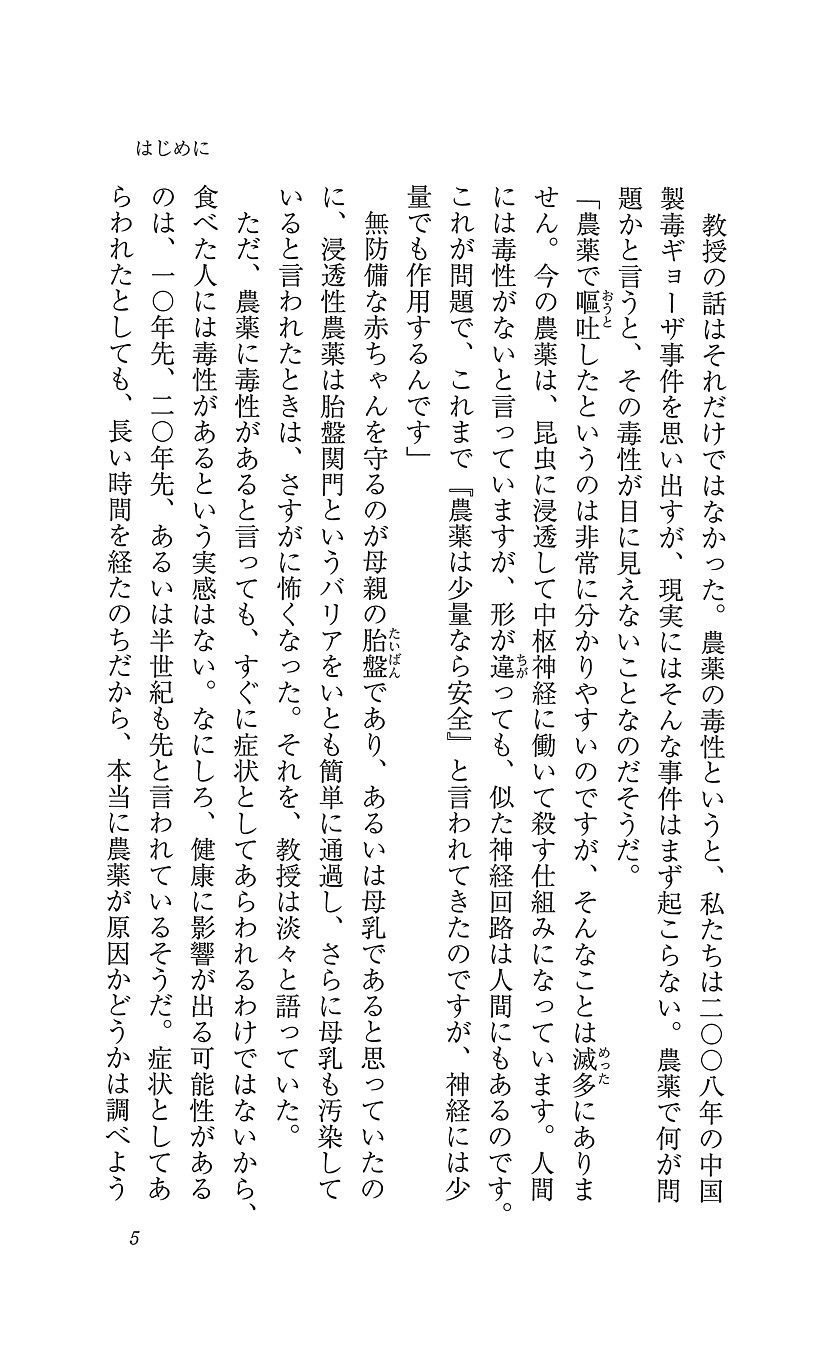 はじめに
教授の話はそれだけではなかった。農薬の毒性というと、私たちは二〇〇八年の中国
製毒ギョーザ事件を思い出すが、現実にはそんな事件はまず起こらない。農薬で何が問
題かと言うと、その毒性が目に見えないことなのだそうだ。
「農薬で嘔吐したというのは非常に分かりやすいのですが、そんなことは滅多にありま
おうと
めった
せん。今の農薬は、昆虫に浸透して中枢神経に働いて殺す仕組みになっています。人間
には毒性がないと言っていますが、形が違っても、似た神経回路は人間にもあるのです。
ちが
これが問題で、これまで『農薬は少量なら安全』と言われてきたのですが、神経には少
量でも作用するんです」
無防備な赤ちゃんを守るのが母親の胎盤であり、あるいは母乳であると思っていたの
たいばん
に、浸透性農薬は胎盤関門というバリアをいとも簡単に通過し、さらに母乳も汚染して
いると言われたときは、さすがに怖くなった。それを、教授は淡々と語っていた。
ただ、農薬に毒性があると言っても、すぐに症状としてあらわれるわけではないから、
食べた人には毒性があるという実感はない。なにしろ、健康に影響が出る可能性がある
のは、一〇年先、二〇年先、あるいは半世紀も先と言われているそうだ。症状としてあ
らわれたとしても、長い時間を経たのちだから、本当に農薬が原因かどうかは調べよう
5